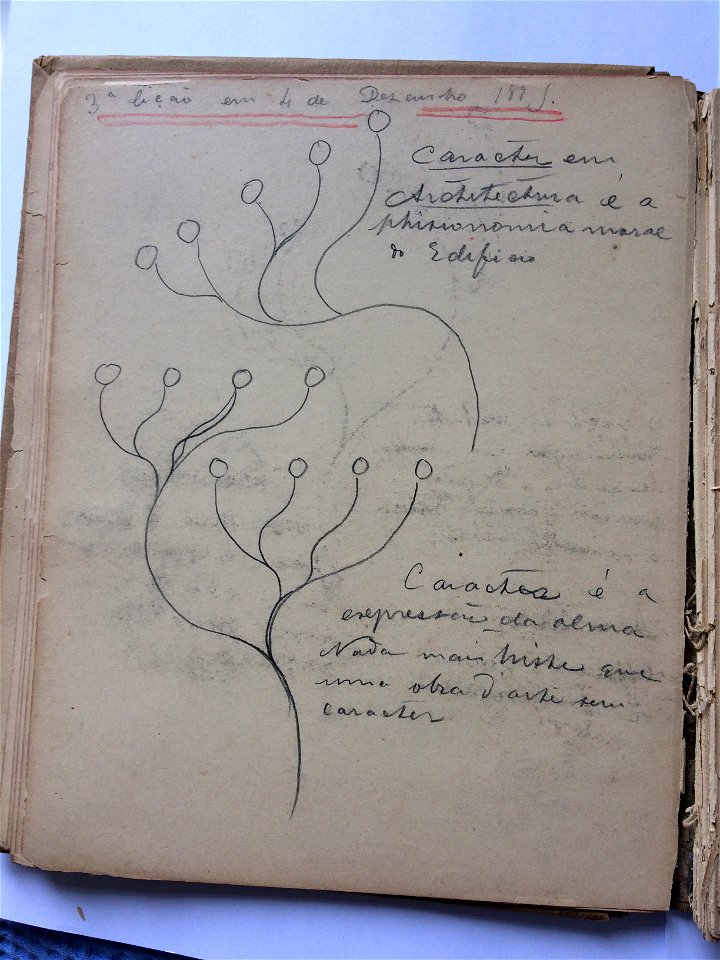 3ª lição em 4 de Dezembro 189
Caracter em
Architectura é a
phisionomia moral
do Edificio
Caracter é a
expressão da alma
Nada mais triste que
uma obra d'arte sem
caracter